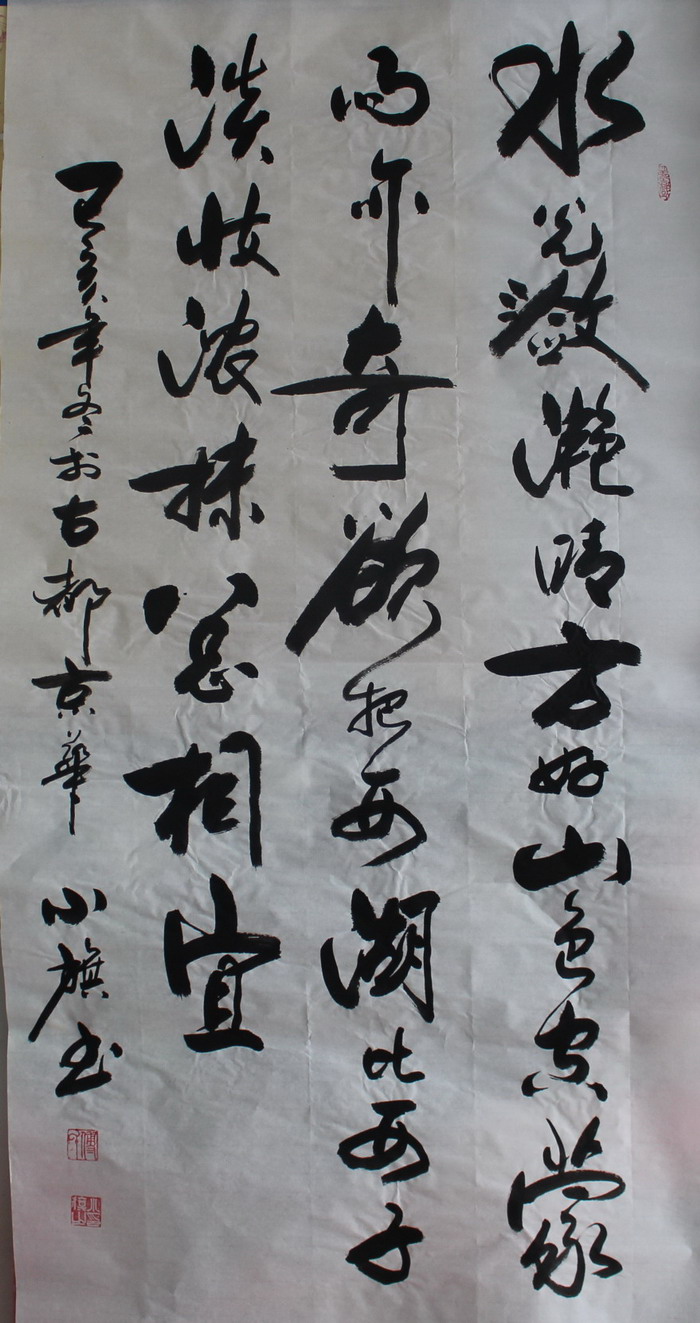 水光潋滟晴方好山色空蒙
雨亦奇欲把西湖比西子
淡妆浓抹总相宜
己亥年冬於古都京華 小旗书